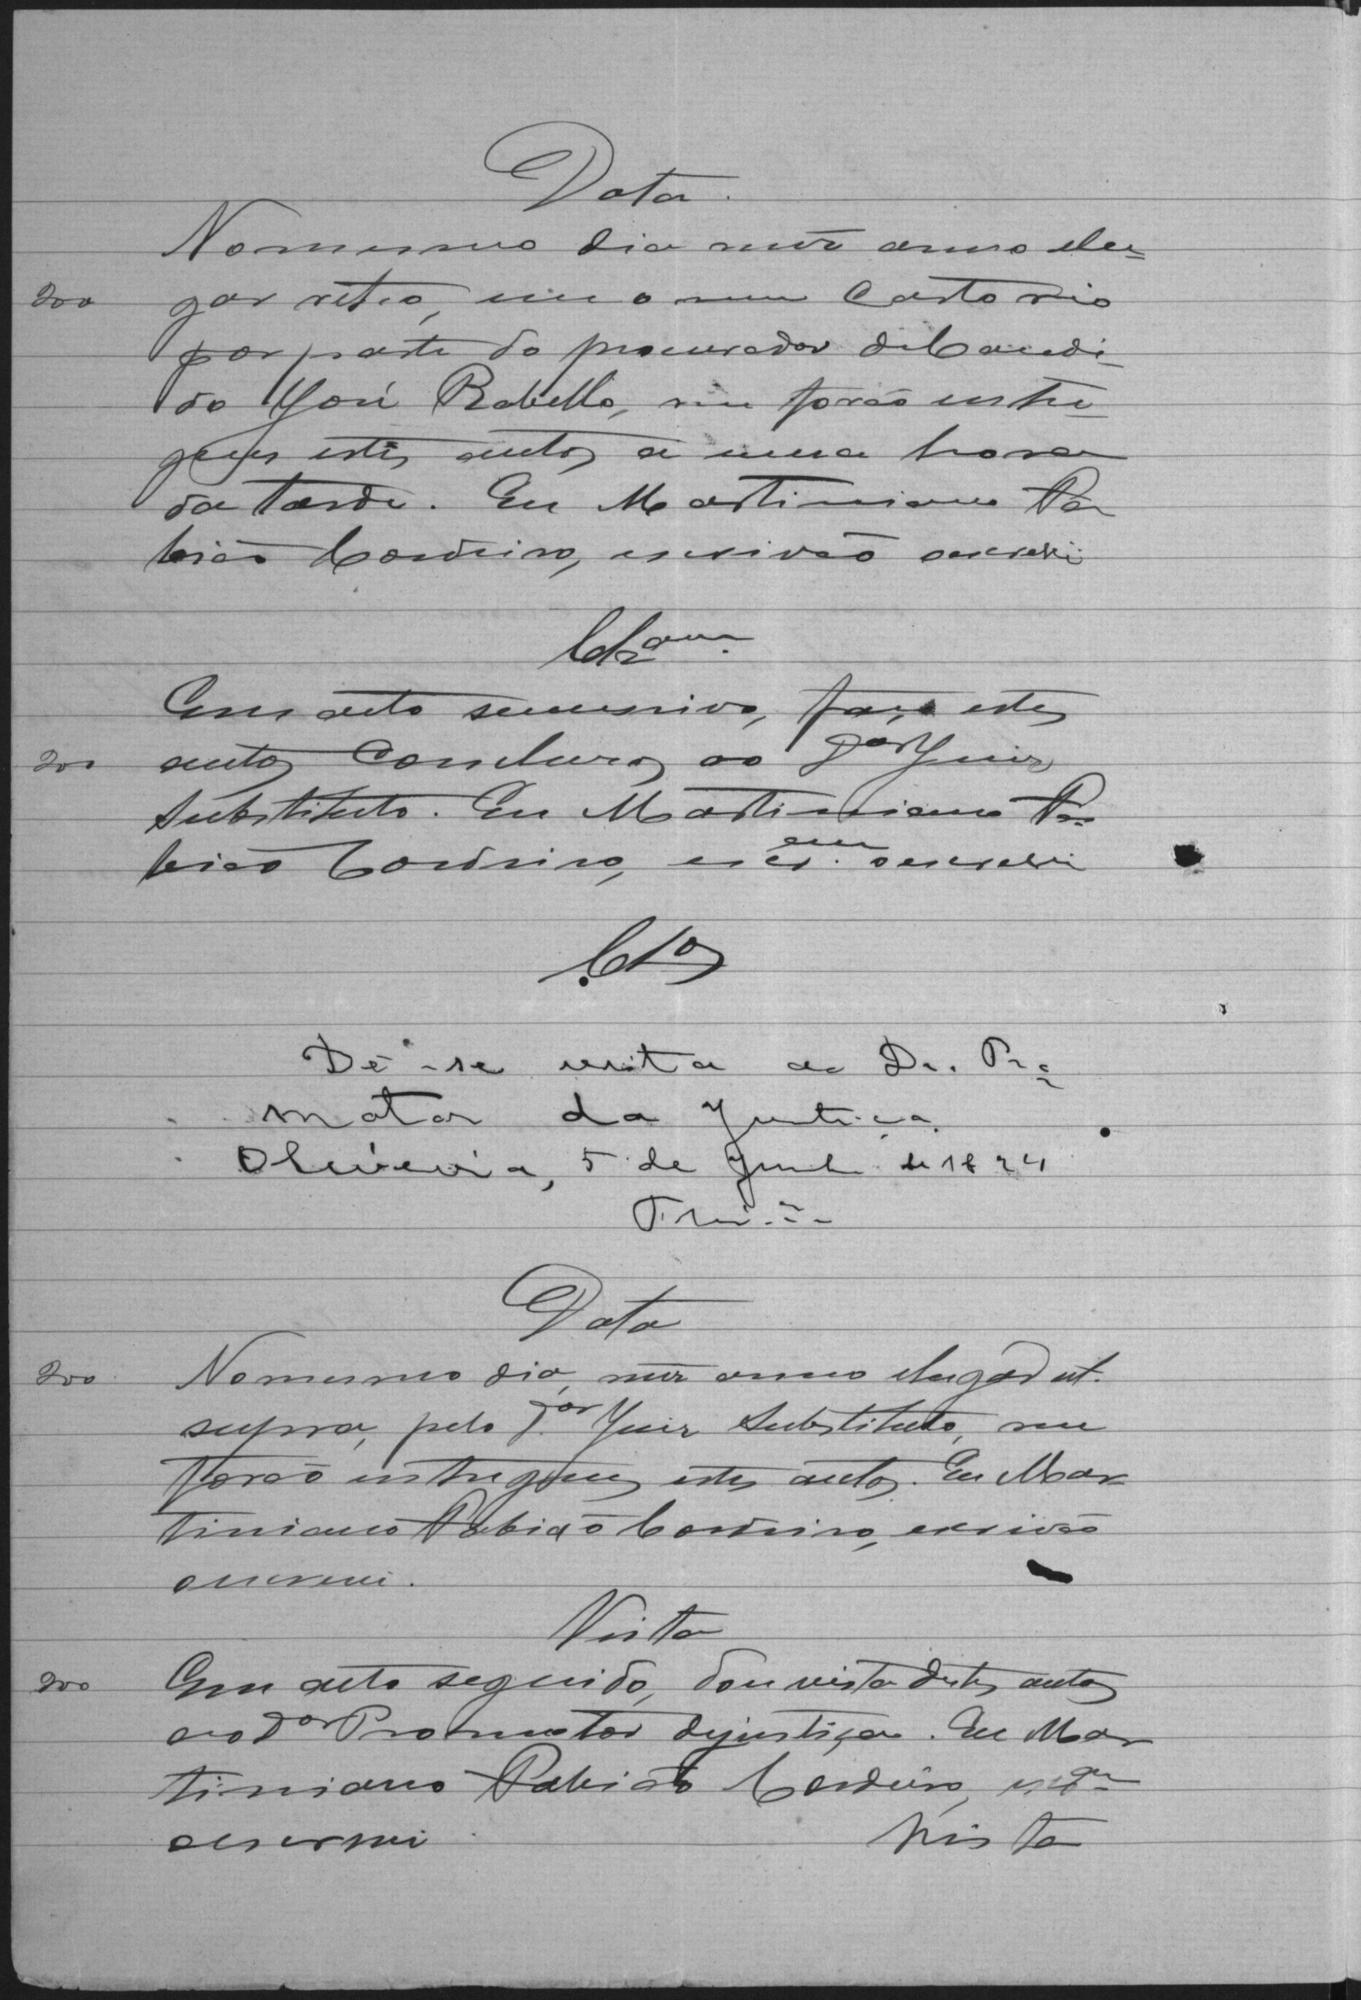 Data.
No mesmo dia mez anno e lu=
200 gar retro, em o meu Cartorio
por parte do procurador de Candi-
do José Rabello, me forão entre-
gues estes autos a uma hora
da tarde. Eu Martiniano Fa
bião Cordeiro, escrivão o escrevi
Clzam.
Em acto successivo, faço estes
200 autos Conclusos ao Dor Juiz
Substituto. Eu Martiniano Fa-
bião Cordeiro, escram. o escrevi
Clos
Dê-se vista ao Dr. Pro=
motor da Justiça.
Oliveira, 5 de Junho de 1894
Data
200 No mesmo dia, mez anno e lugar ut.
supra, pelo Dor Juiz Substituto, me
forão entregues estes autos. Eu Mar
tiniano Fabião Cordeiro, escrivão
o escrevi.
Vista
200 Em acto seguido, dou vista destes autos
ao Dor Promotor de justiça. Eu Mar
tiniano Fabião Cordeiro,
o escrevi Vista